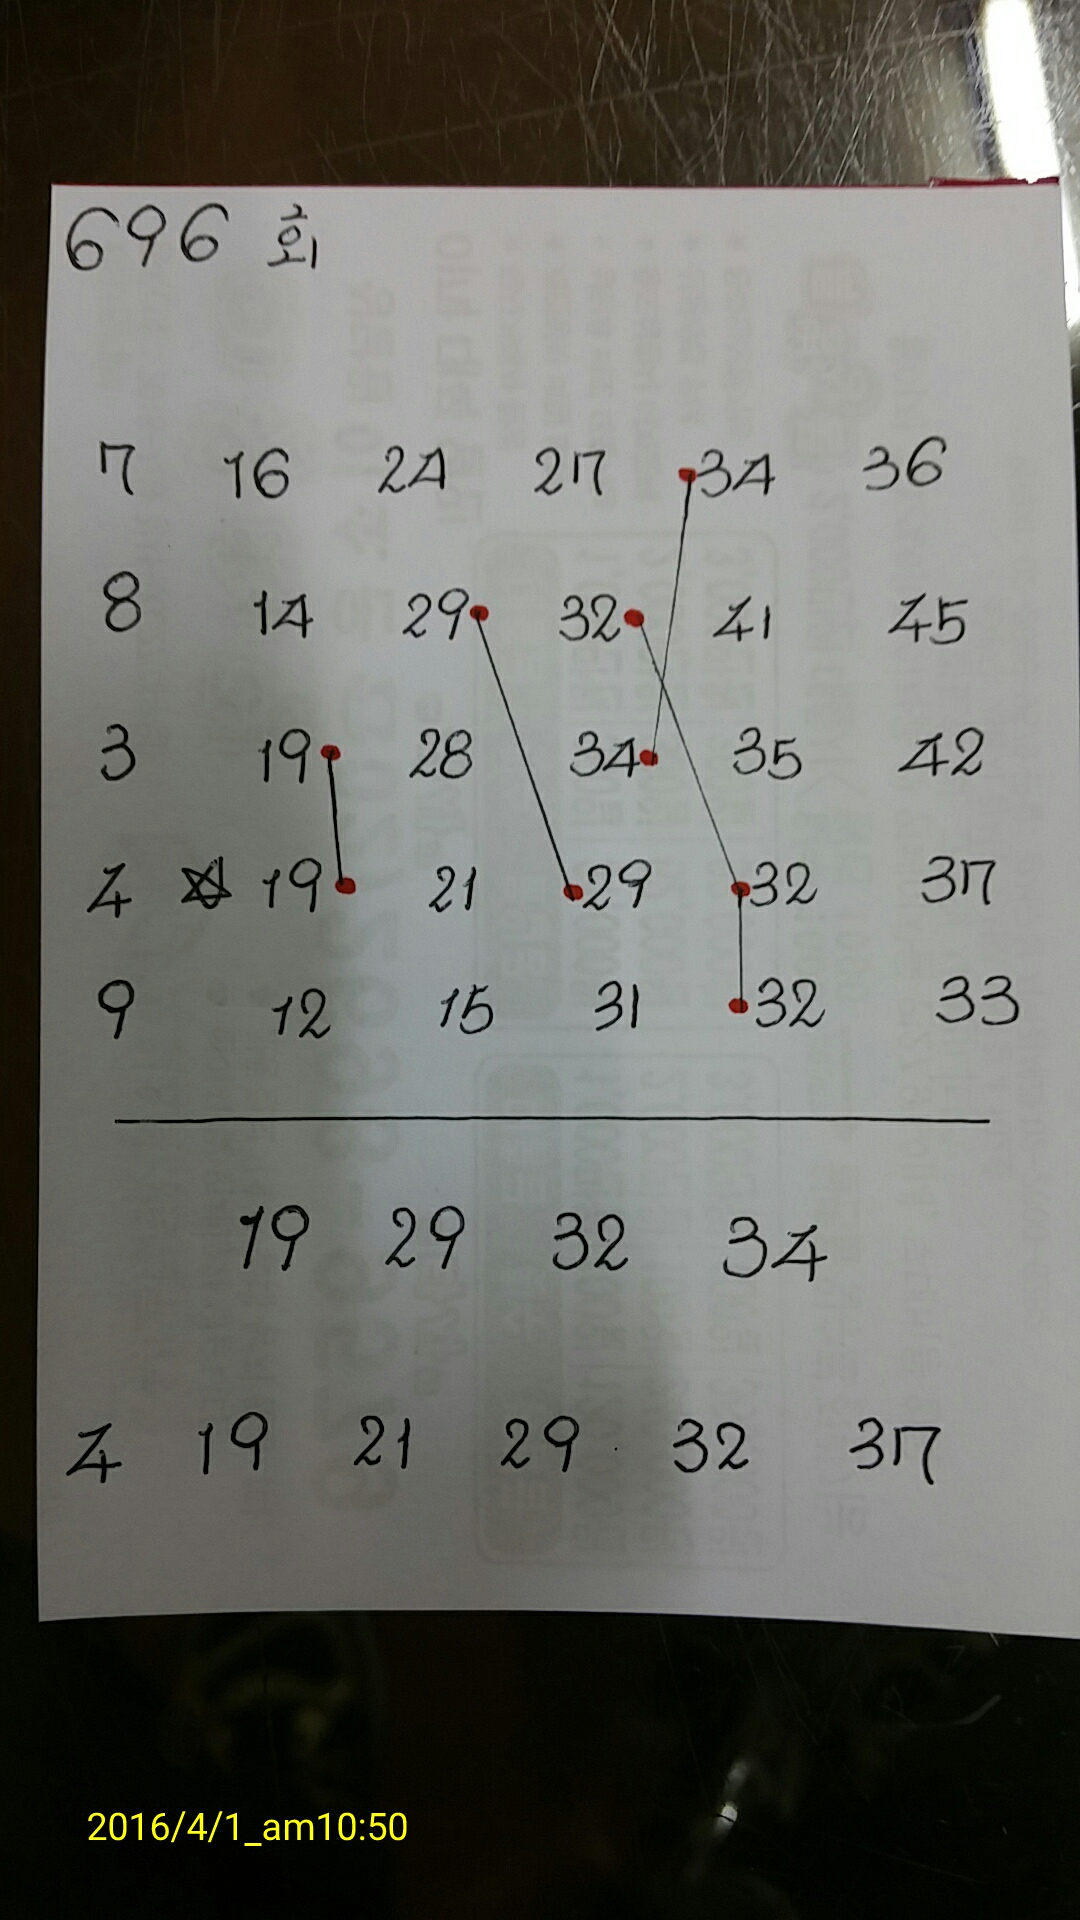 696 회
7 16 24 27 34 36
8 14 29 32 41 45
3 19 28 34 35 42
4 ☆ 19 21 29 32 37
9 12 15 31 32 33
19 29 32 34
4 19 21 29 32 37
2016/4/1_am10:50